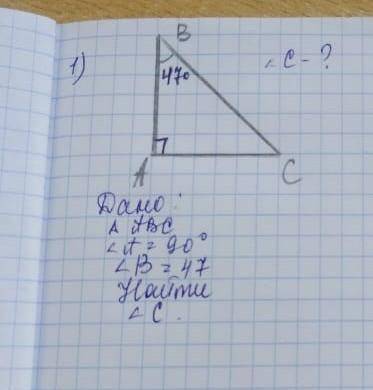 1)
B
∠C - ?
47°
A
C
Дано:
Δ ABC
∠A = 90°
∠B = 47
Найти
∠C.